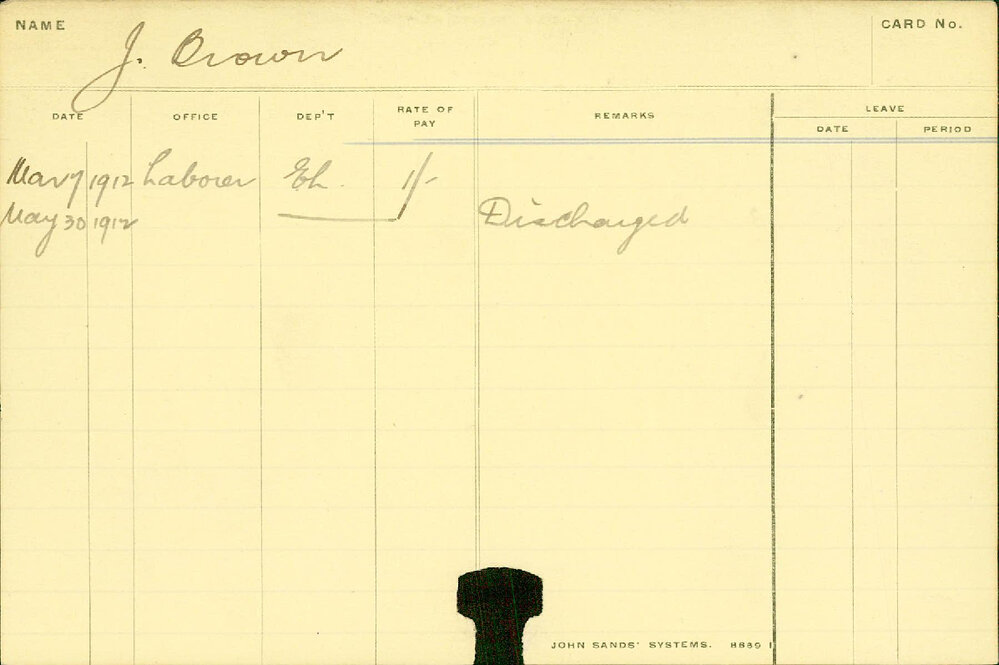 NAME J. Brown CARD No.
DATE OFFICE DEP'T RATE OF PAY REMARKS LEAVE
DATE PERIOD
Mar 7 1912 Laborer Eh. 1/-
May 30 1912 Discharged
JOHN SANDS' SYSTEMS.